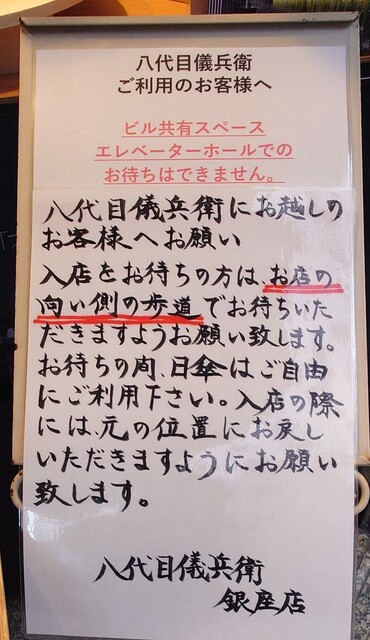 八代目儀兵衛
ご利用のお客様へ
ビル共有スペース
エレベーターホールでの
お待ちはできません。
八代目儀兵衛にお越しの
お客様へお願い
入店をお待ちの方は、お店の
向い側の歩道でお待ちいた
だきますようお願い致します。
お待ちの間、日傘はご自由
にご利用下さい。入店の際
には、元の位置にお戻し
いただきますようにお願い
致します。
八代目儀兵衛
銀座店